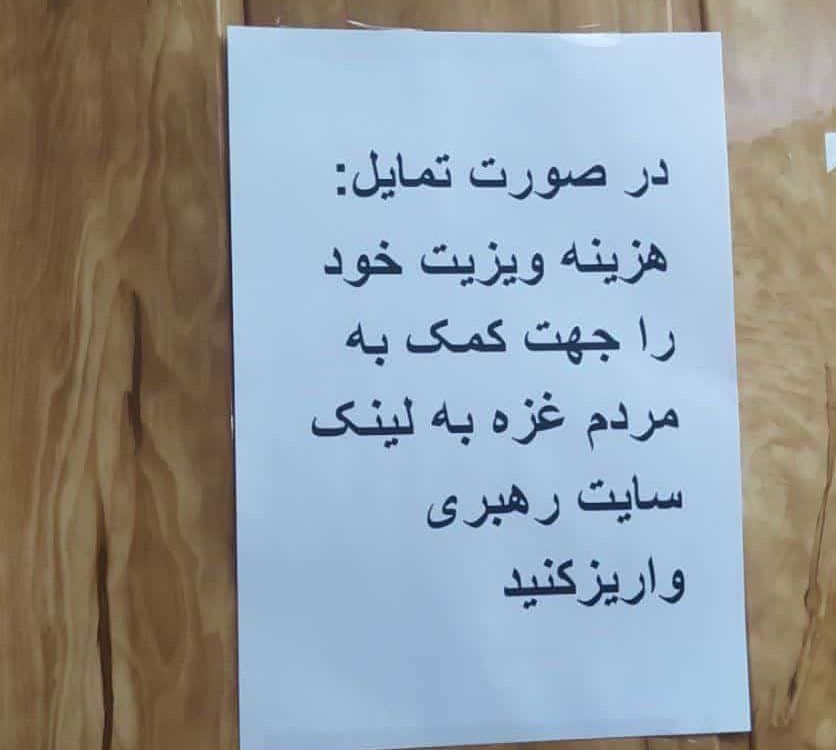 در صورت تمایل:
هزینه ویزیت خود
را جهت کمک به
مردم غزه به لینک
سایت رهبری
واریزکنید